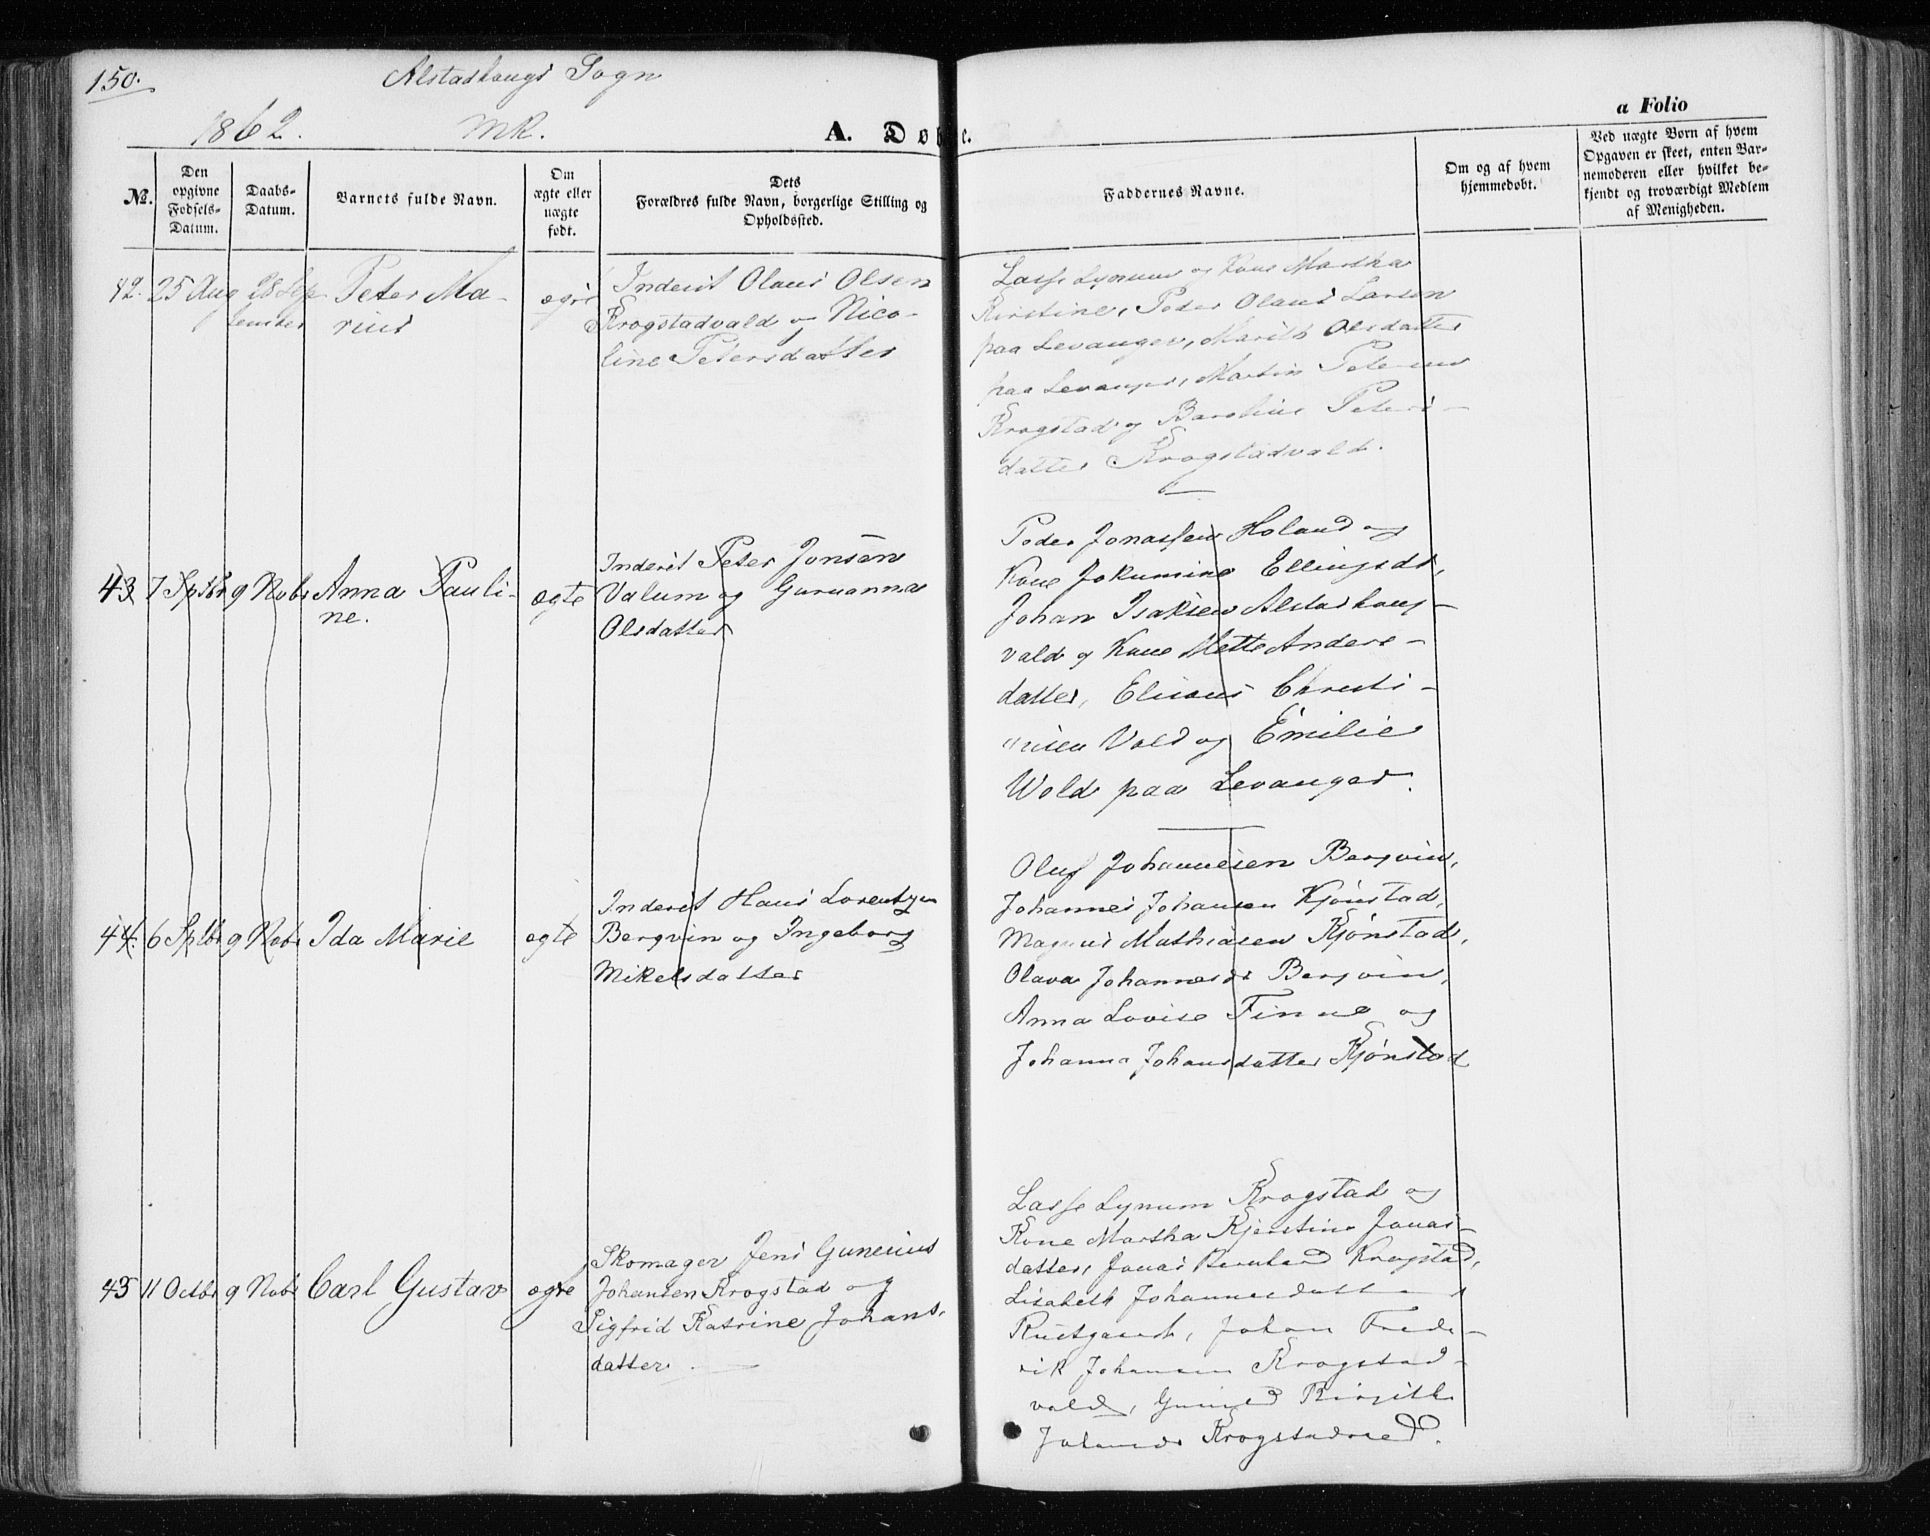 150.
Alstadhougs Sogn
a Folio
1862.
MK.
A. Døbte.
No.
Den opgivne Fødsels-Datum.
Daabs-Datum.
Barnets fulde Navn.
Om ægte eller uægte født.
Dets Forældres fulde Navn, borgerlige Stilling og Opholdssted.
Faddernes Navne.
Om og af hvem hjemmedøbt.
Ved uægte Børn af hvem Opgaven er skeet, enten Barnemoderen eller hvilket bekjendt og troværdigt Medlem af Menigheden.
42. 25 Aug 28 Sep
tember
Peter Ma-
rius
ægte
Inderst Olaus Olsen
Krogstadvald og Nico-
line Petersdatter
Lasse Lynum og Kone Martha
Kirstine, Peder Olaus Larsen
paa Levanger, Marith Olsdatter
paa Levanger, Martin Petersen
Krogstad og Peters-
datter Krogstadvald.
43 7 Sptbr 9 Novbr Anna Pauli-
ne.
ægte
Inderst Peter Jonsen
Valum og Guruanna
Olsdatter
Peder Jonassen Holand og
Kone Jokumine Ellingsdt,
Johan Isaksen Alstadhoug-
vald og Kone Mette Anders-
datter, Elisaus Christi-
ansen Vold og Emilie
Wold paa Levanger.
44. 6 Sptbr 9 Novbr Ida Marie
ægte
Inderst Hans Lorentsen
Bergvin og Ingeborg
Mikelsdatter
Oluf Johannesen Bergvin,
Johannes Johansen Kjønstad,
Magnus Mathiasen Kjønstad,
Olava Johannesdt Bergvin,
Anna Lovise Finne og
Johanna Johansdatter Kjønstad
45 11 Octbr 9 Novbr Carl Gustav
ægte
Skomager Jens Gunerius
Johansen Krogstad og
Sigfrid Katrine Johans-
datter.
Lasse Lynum Krogstad og
Kone Martha Kjerstine Jonas-
datter, Jonas Bernhard Krogstad,
Lisabeth Johannesdatter
Johan Frede-
rik Johansen Krogstad-
vald, Birgitte
Krogstadvald.